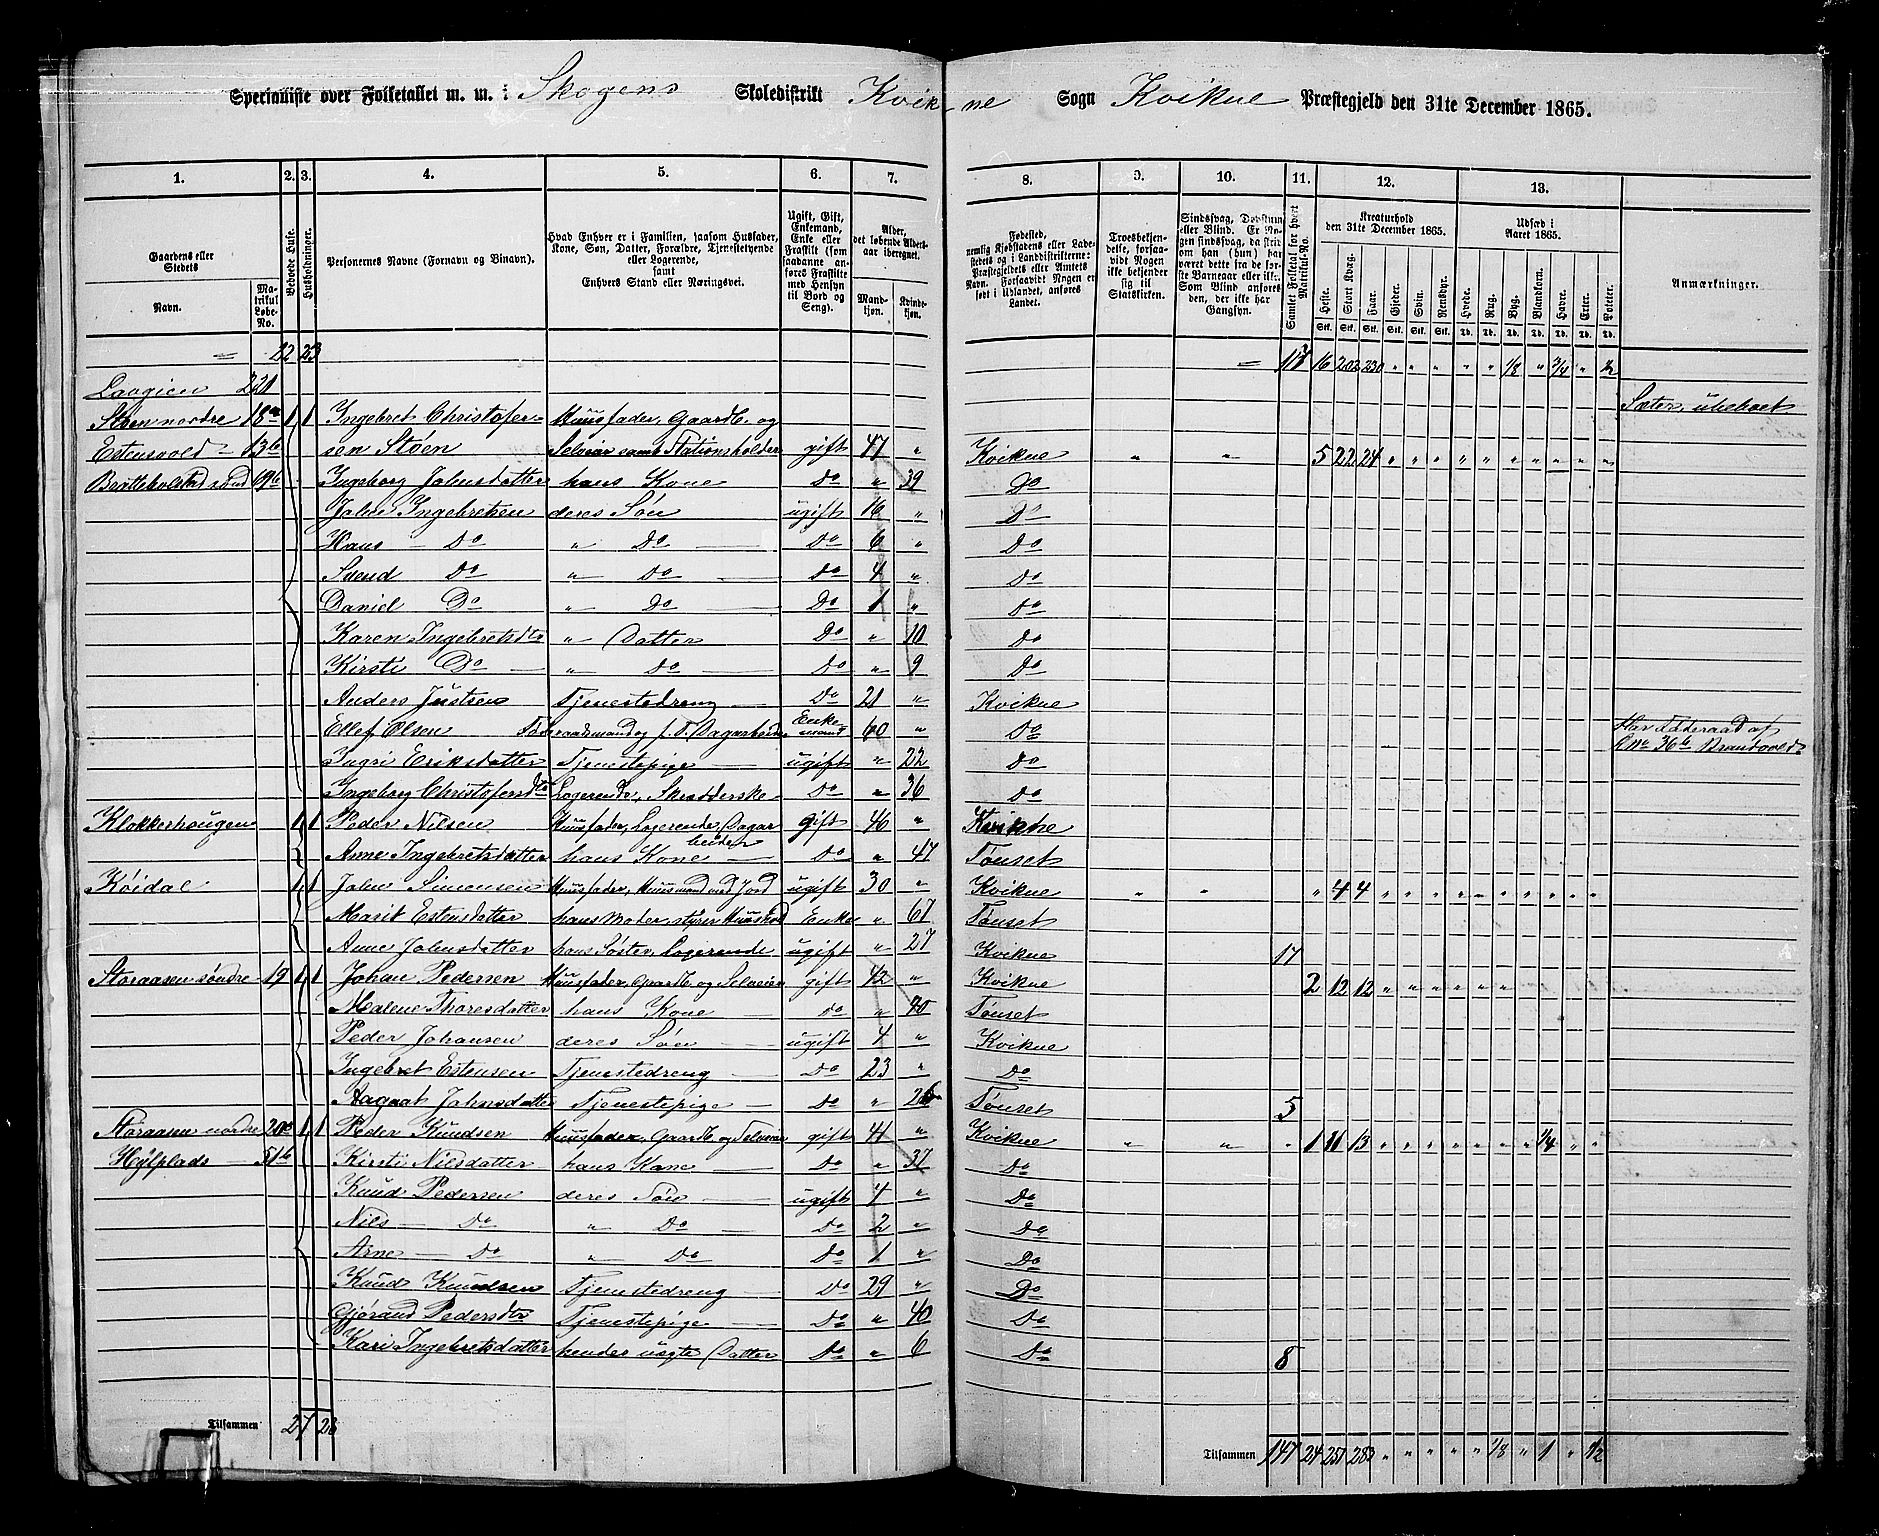 Specialliste over Folketallet m. m. i Skogens Skoledistrikt Kvikne Sogn Kvikne Præstegjeld den 31te December 1865.
1. 2. 3. 4. 5. 6. 7. 8. 9. 10. 11. 12. 13.
Gaardens eller Stedets
Navn.
Matrikul Løbe-No.
Beboede Huse.
Husholdninger.
Personernes Navne (Fornavn og Binavn).
Hvad Enhver er i Familien, saasom Husfader, Kone, Søn, Datter, Forældre, Tjenestetyende eller Logerende, samt Enhvers Stand eller Næringsvei.
Ugift, Gift, Enkemand, Enke eller Fraskilt (som saadanne anføres Fraskilte med Hensyn til Bord og Seng).
Alder, det løbende Aldersaar iberegnet.
Mandkjøn. Kvindekjøn.
Fødested, nemlig Kjøbstadens eller Ladestedets og i Landdistrikterne: Præstegjeldets eller Amtets Navn. Forsaavidt Nogen er født i Udlandet, anføres Landet.
Troesbekjendelse, forsaavidt Nogen ikke bekjender sig til Statskirken.
Sindssvag, Døvstum eller Blind. Er Nogen sindssvag, da skrives om han (hun) har været dette fra de første Barneaar eller ikke. Som Blind anføres den, der ikke har Gangsyn.
Samlet Folketal for hvert Matrikul-No.
Kreaturhold den 31te December 1865.
Heste. Stort Kvæg. Faar. Gjeder. Svin. Rensdyr.
Udsæd i Aaret 1865.
Hvede. Rug. Byg. Blandkorn. Havre. Erter. Poteter.
Anmærkninger.
22 23 117 16 202 230 " " " " " 1/8 " 3/4 " 1/2
221 Sæter, ubeboet
Støen nordre 18a 1 1 Ingebret Christofer- Huusfader, Gaardb. og
Estensvold 13b sen Støen Selveier samt Stationsholder gift 47 " Kvikne " " 5 22 24 " " " " " " " " " "
19b Ingeborg Johnsdatter hans Kone Do " 39 Do
John Ingebretsen deres Søn ugift 16 " Do
Hans Do " Do Do 6 " Do
Svend Do " Do Do 4 " Do
Daniel Do " Do Do 1 " Do
Karen Ingebretsdtr " Datter Do " 10 Do
Kirsti Do " Do Do " 9 Do
Anders Justsen Tjenestedreng Do 21 " Kvikne
Ellef Olsen Føderaadsmand og f. T. Dagarbeider Enkemand 60 " Do Har Føderaad af L No 36b Brandvold
Ingri Eriksdatter Tjenestepige ugift " 22 Do
Ingeborg Christofersdtr Logerende, Skrædderske Do " 36 Do
Klokkerhougen 1 1 Peder Nilsen Huusfader, Logerende, Dagarbeider gift 46 " Kvikne
Anne Ingebretsdatter hans Kone Do " 47 Tønset
Røidal 1 1 John Simensen Huusfader, Huusmand med Jord ugift 30 " Kvikne " " " 4 4 " " " " " " " " " "
Marit Estensdatter hans Moder, styrer Huushold Enke " 67 Tønset
Anne Johnsdatter hans Søster, Logerende ugift " 27 Kvikne 17
Storaasen søndre 19 1 1 Johan Pedersen Huusfader, Gaardb. og Selveier gift 42 " Kvikne 2 12 12 " " " " " "
Malene Thoresdatter hans Kone Do " 40 Tønset
Peder Johansen deres Søn ugift 4 " Kvikne
Ingebret Estensen Tjenestedreng Do 23 " Do
Aagaat Johnsdatter Tjenestepige Do " 26 Tønset 5
Storaasen nordre 20a 1 1 Peder Knudsen Huusfader, Gaardb. og Selveier gift 41 " Kvikne " " " 1 11 13 " " " " " " " 1/4 " "
Høilplads 51b Kirsti Nilsdatter hans Kone Do " 37 Do
Knud Pedersen deres Søn ugift 4 " Do
Nils Do " Do Do 2 " Do
Arne Do " Do Do 1 " Do
Knud Knudsen Tjenestedreng Do 29 " Do
Gjørand Pedersdtr Tjenestepige Do " 40 Do
Kari Ingebretsdatter hendes uægte Datter Do " 6 Do 8
Tilsammen 27 28
Tilsammen 147 24 251 283 " " " " " 1/8 " 1 " 1/2